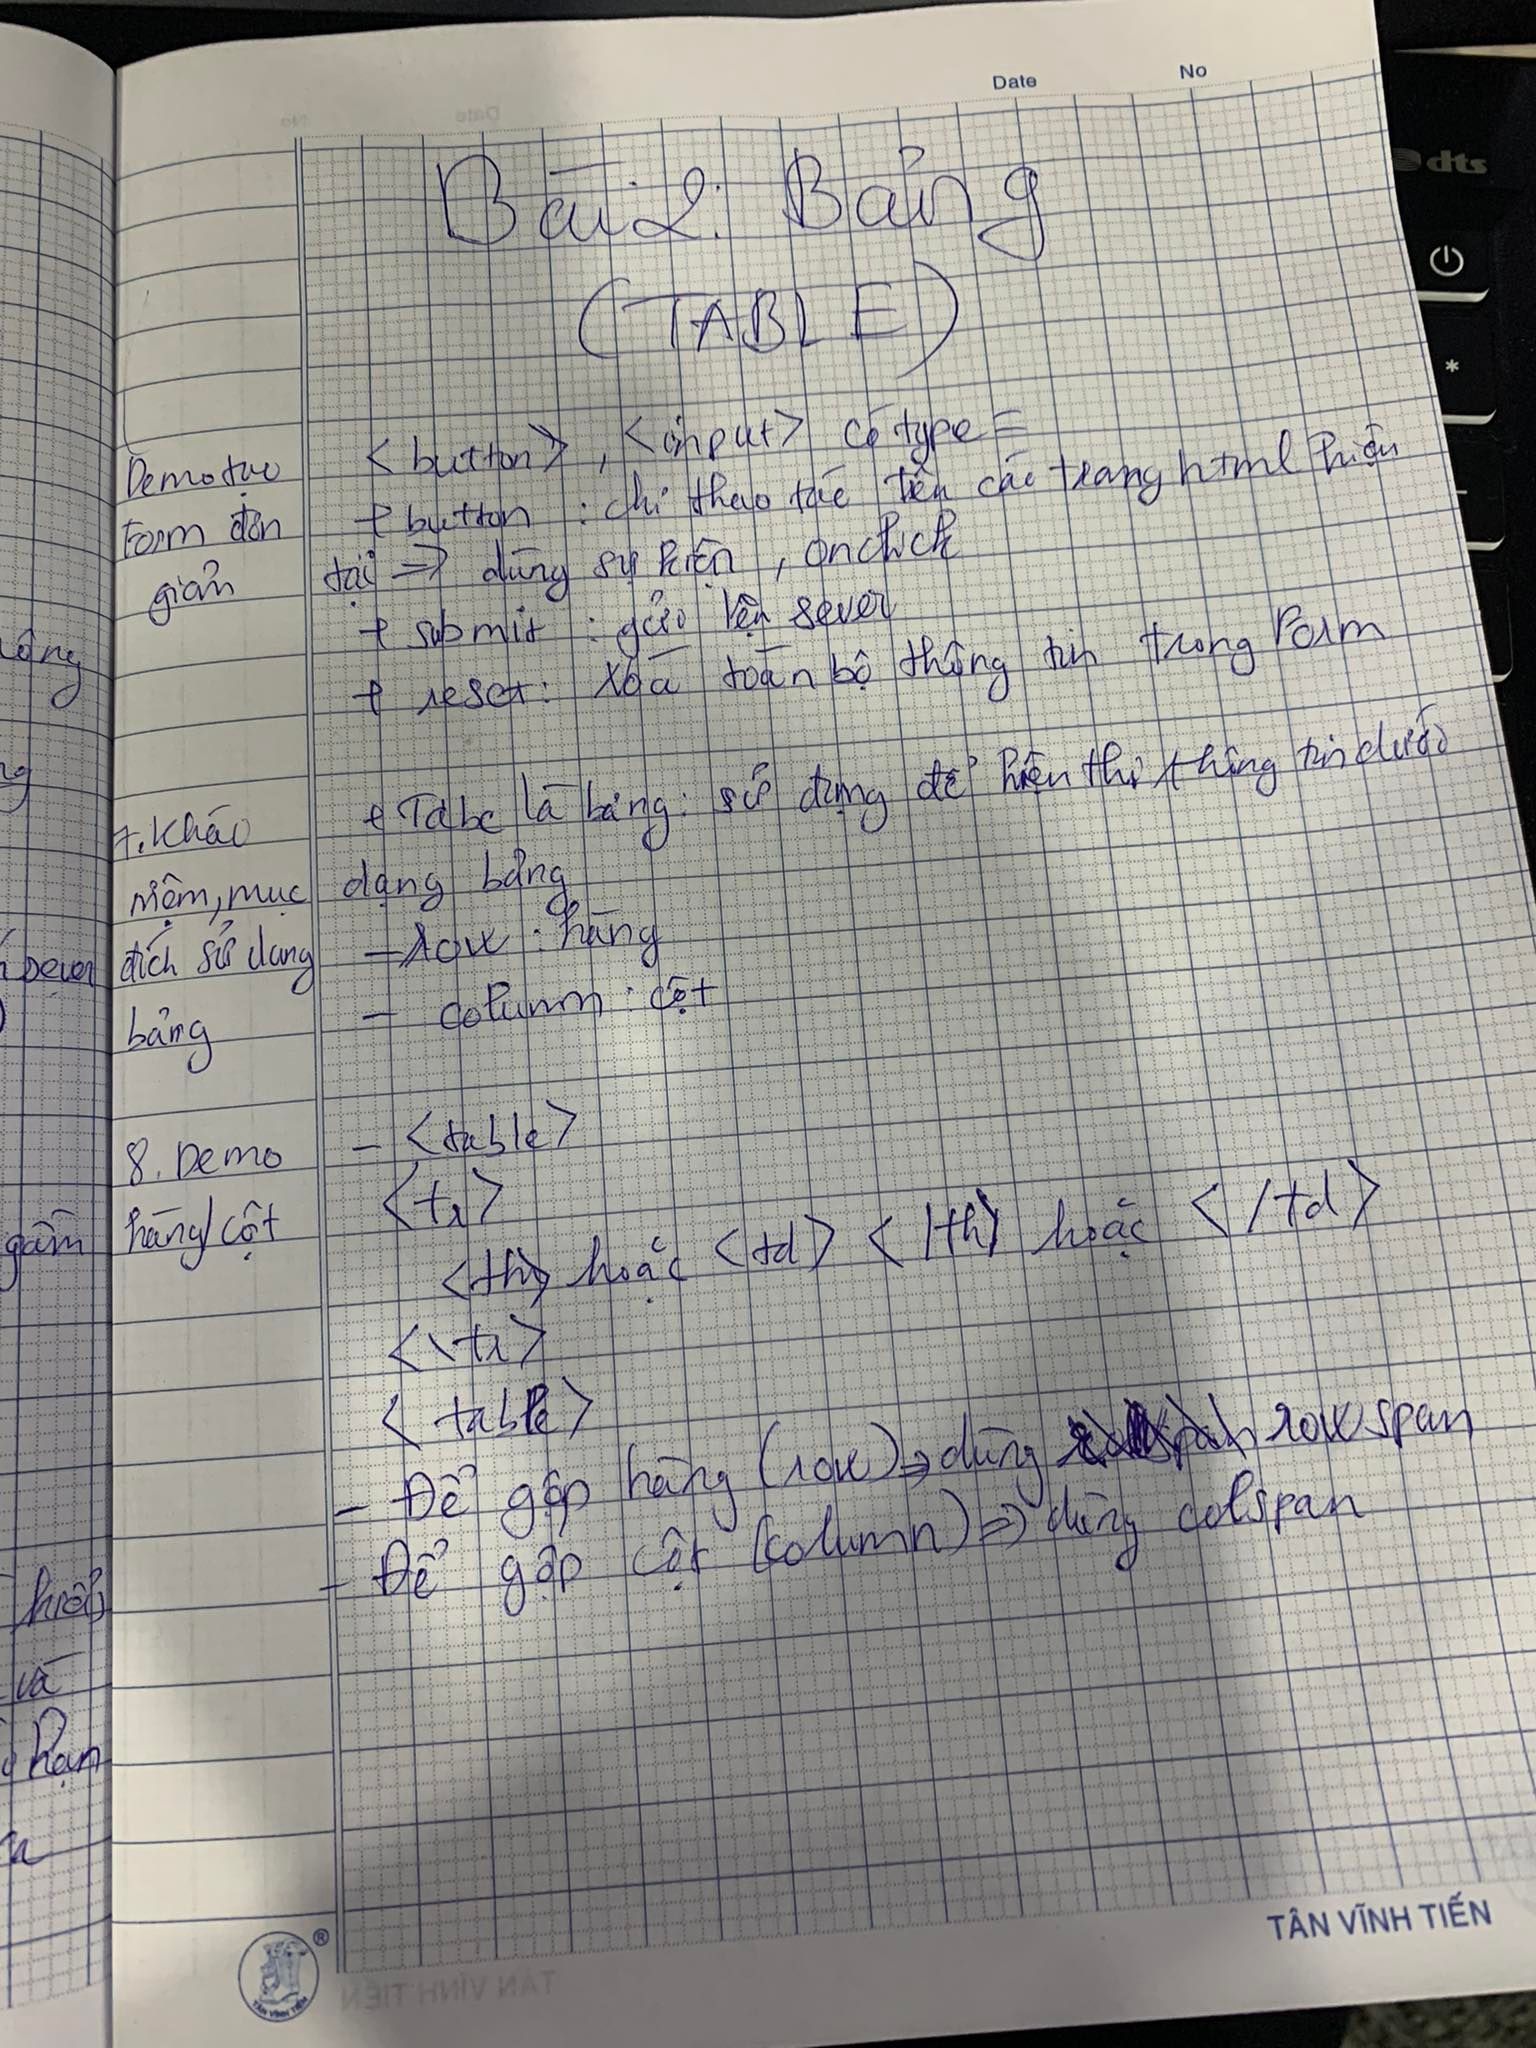 Date No
Bài 2: Bảng
(TABLE)
Demo tạo
Form đơn
giản
<button>, <input> có type =
+ button : chỉ thao tác trên các trang html hiện
tại => dùng sự kiện, onclick
+ submit : gửi lên sever
+ reset: xóa toàn bộ thông tin trong Form
7. Khái
niệm, mục
đích sử dụng
bảng
+ Table là bảng: sử dụng để hiện thị thông tin dưới
dạng bảng
- row : hàng
- column : cột
8. Demo
hàng/cột
- <table>
<tr>
<th> hoặc <td> </th> hoặc </td>
<\tr>
<table>
- Để gộp hàng (row) => dùng rowspan
- Để gộp cột (column) => dùng colspan
TÂN VĨNH TIẾN
TÂN VĨNH TIẾN
ông
ng
sever
gầm
hiển
và
hạn
dts